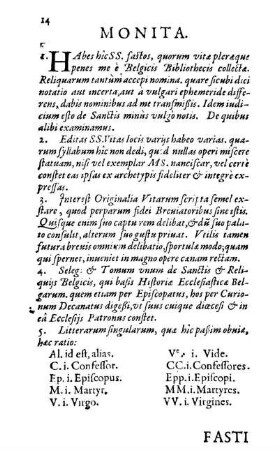 14
MONITA.
1. HAbes hic SS. fastos, quorum vitæ pleræque
penes me è Belgicis Bibliothecis collectæ.
Reliquarum tantùm accepi nomina. quare sicubi dici
notatio aut incerta, aut a vulgari ephemeride diffe-
rens, dabis nominibus ad me transmissis. Idem iudi-
cium esto de Sanctis minùs vulgo notis. De quibus
alibi examinamus.
2. Editas SS. Vitas locis varijs habeo varias. qua-
rum syllabum hic non dedi, quòd nullas operi miscere
statuam, nisi vel exemplar MS. nanciscar, vel certè
constet eas ipsas ex archetypis fideliter & integrè ex-
pressas.
3. Interest Originalia Vitarum scripta semel ex-
stare, quod perparum fidei Breuiatoribus sine istis.
Quisque enim suo captu rem delibat, & dũ suo pala-
to consulit, alterum suo gustu priuat. Vtilis tamen
futura breuis omnium delibatio, sportulæ modo; quam
qui spernet, inueniet in magno opere canam rectam.
4. Seleg: & Tomum vnum de Sanctis & Reli-
quijs Belgicis, qui basis Historiæ Ecclesiasticæ Bel-
garum, quem etiam per Episcopatus, hos per Curio-
num Decanatus digessi, vt suus cuique diœcesi & in
eâ Ecclesijs Patronus constet.
5. Litterarum singularum, quæ hic passim obuiæ,
hæc ratio:
Al. id est, alias. V. i. Vide.
C. i. Confessor. CC. i. Confessores.
Ep. i. Episcopus. Epp. i. Episcopi.
M. i. Martyr. MM. i. Martyres.
V. i. Virgo. VV. i. Virgines.
FASTI